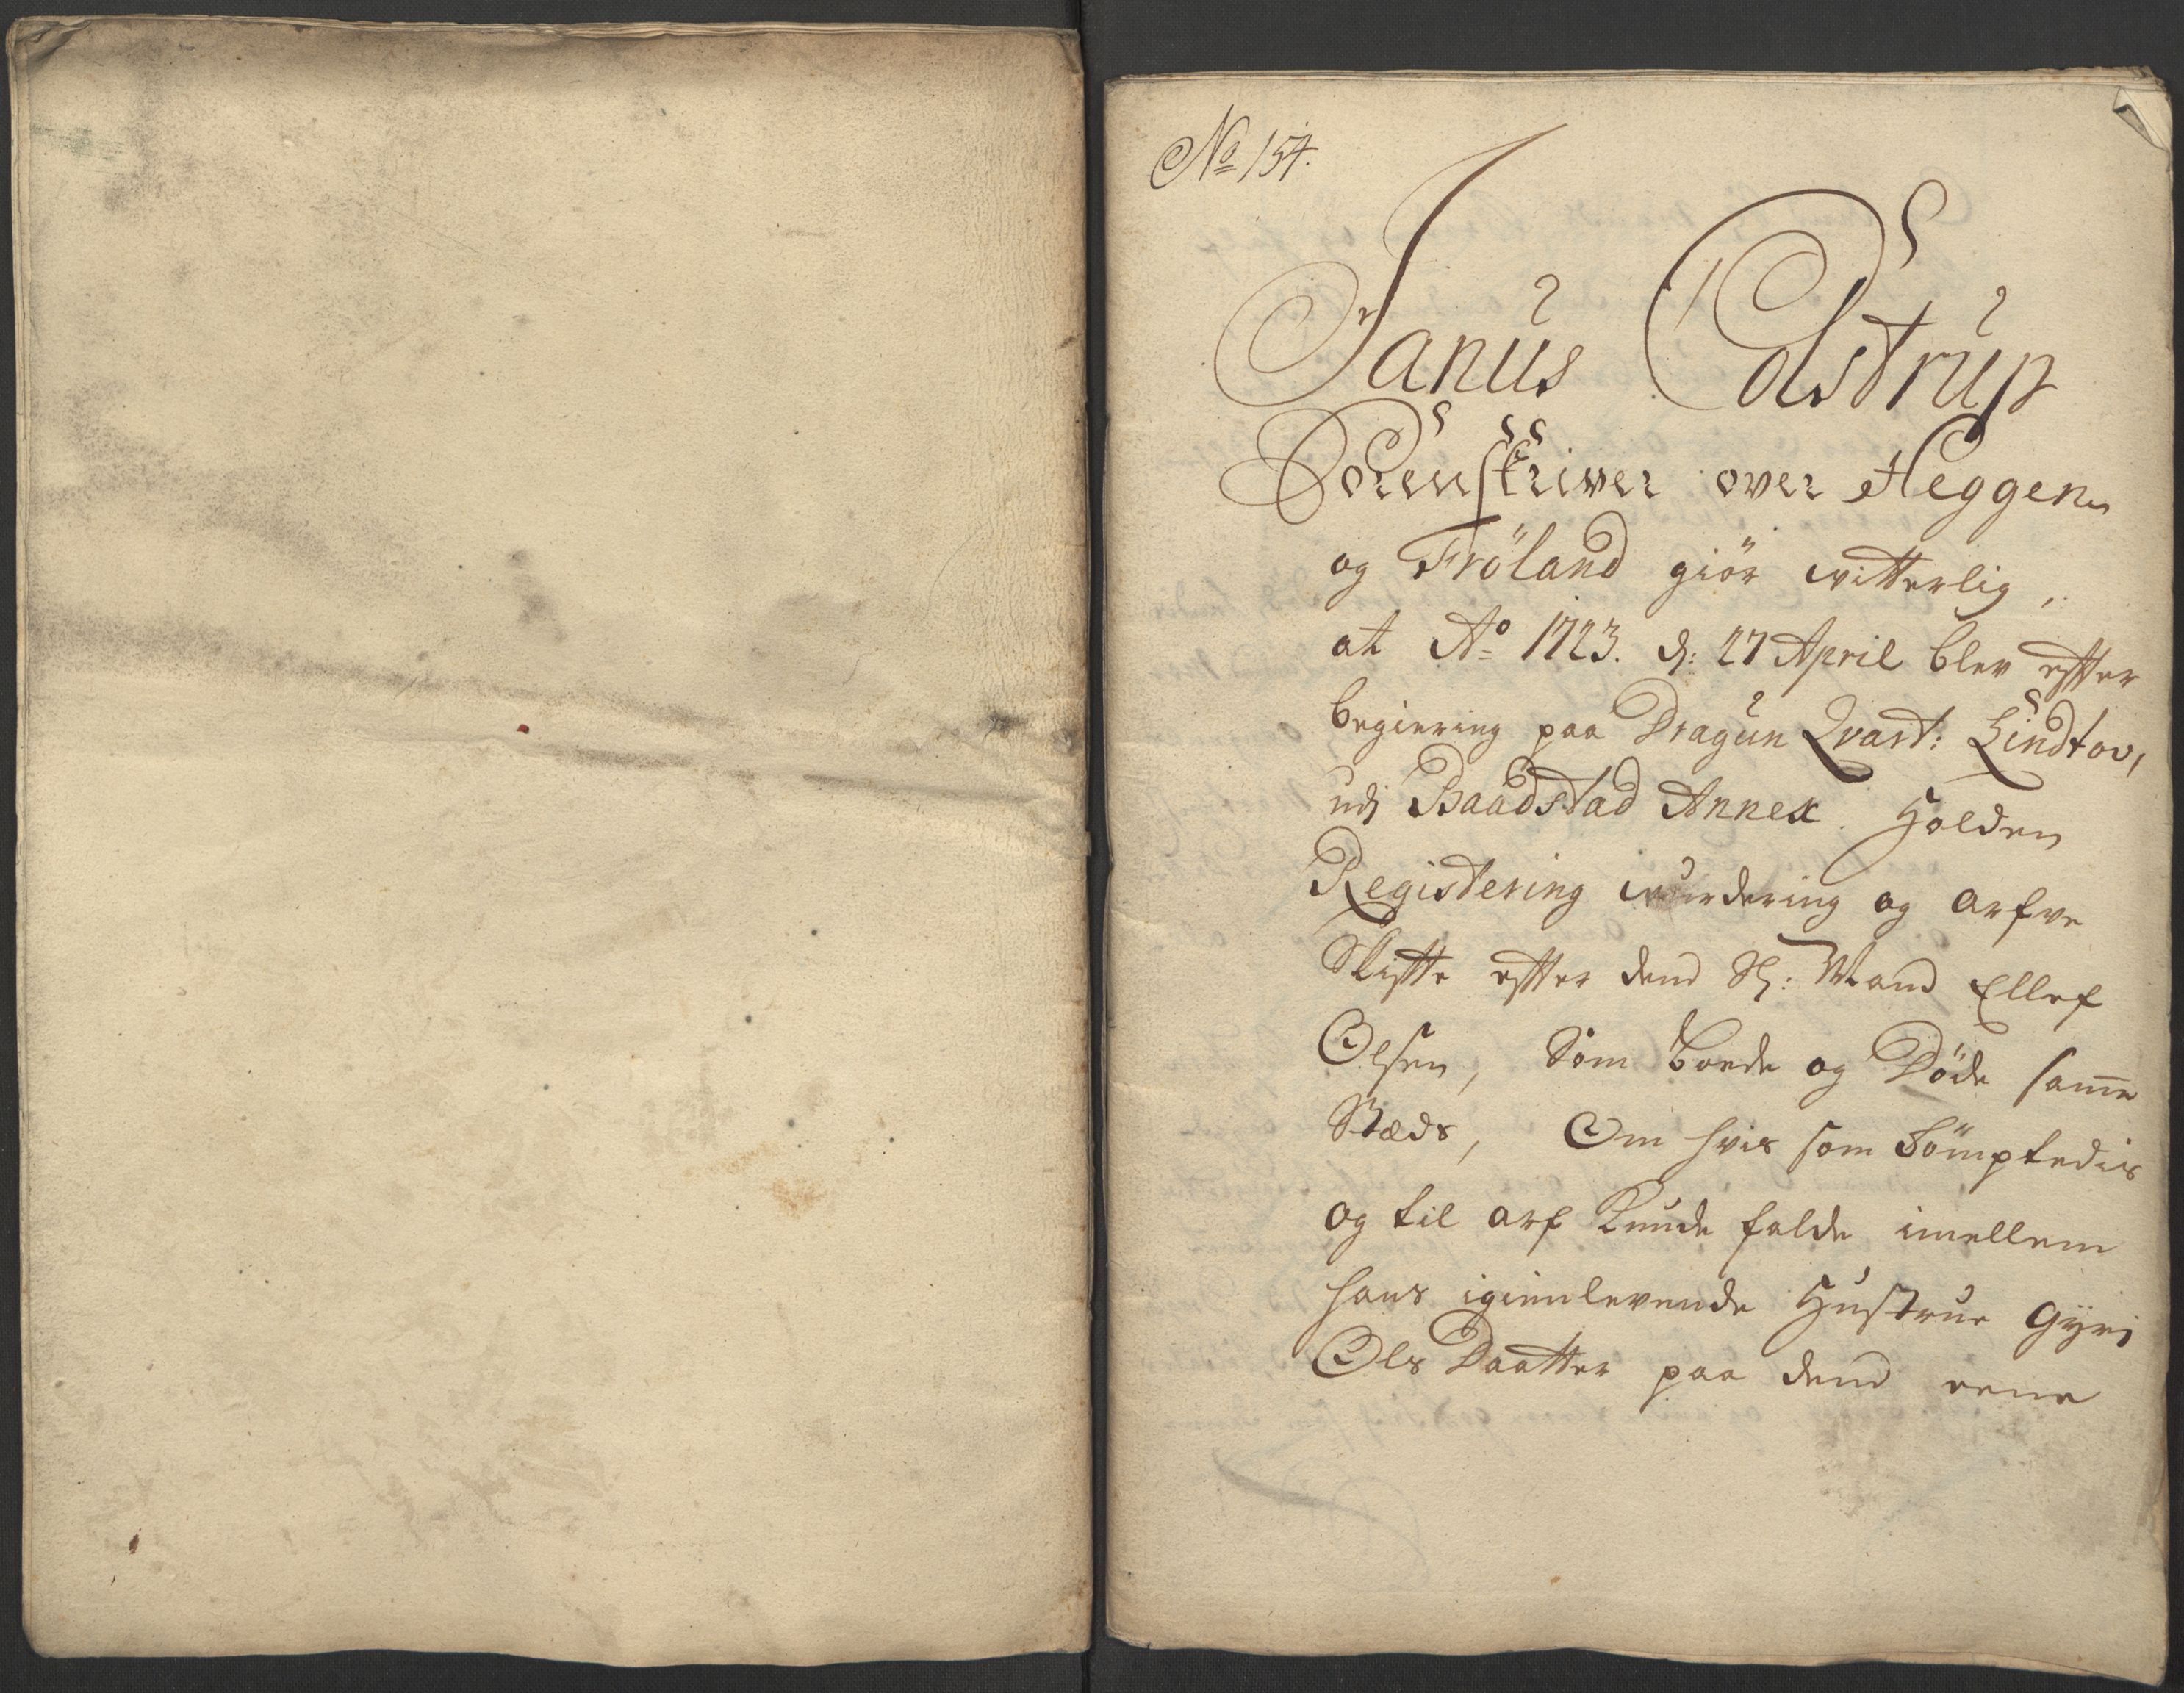 No 154.
Janus Colstrup
Sorenskriver over Heggen
og Fröland giör witterlig,
at Ao 1723. d: 27 April blev effter
begiering paa Dragun Qvart: Lindtov,
udj Baadstad Annex. Holden
Registering wurdering og arfve
Skiffte effter dend Sl: Mand Ellef
Olsen, Som boede og Döde samme
Stæds, Om hvis som
og til arf kunde falde imellem
hans igienlevende Hustrue Gyri
Ols Daatter paa dend eene